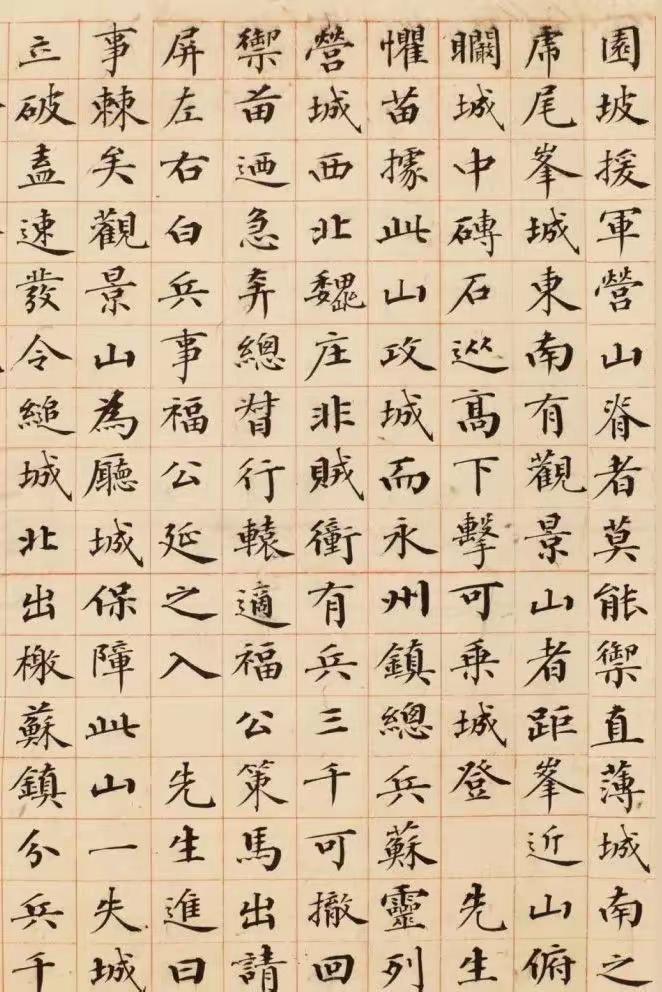 園坡援軍營山脊者莫能禦直薄城南之
虎尾峯城東南有觀景山者距峯近山俯
矙城中磚石從高下擊可乗城登 先生
懼苗據此山攻城而永州鎮總兵蘇靈列
營城西北魏庄非賊衝有兵三千可撤回
禦苗迺急弃總督行轅適福公策馬出請
屏左右白兵事福公延之入 先生進曰
事棘矣觀景山為廳城保障此山一失城
立破盍速發令縋城北出檄蘇鎮分兵千